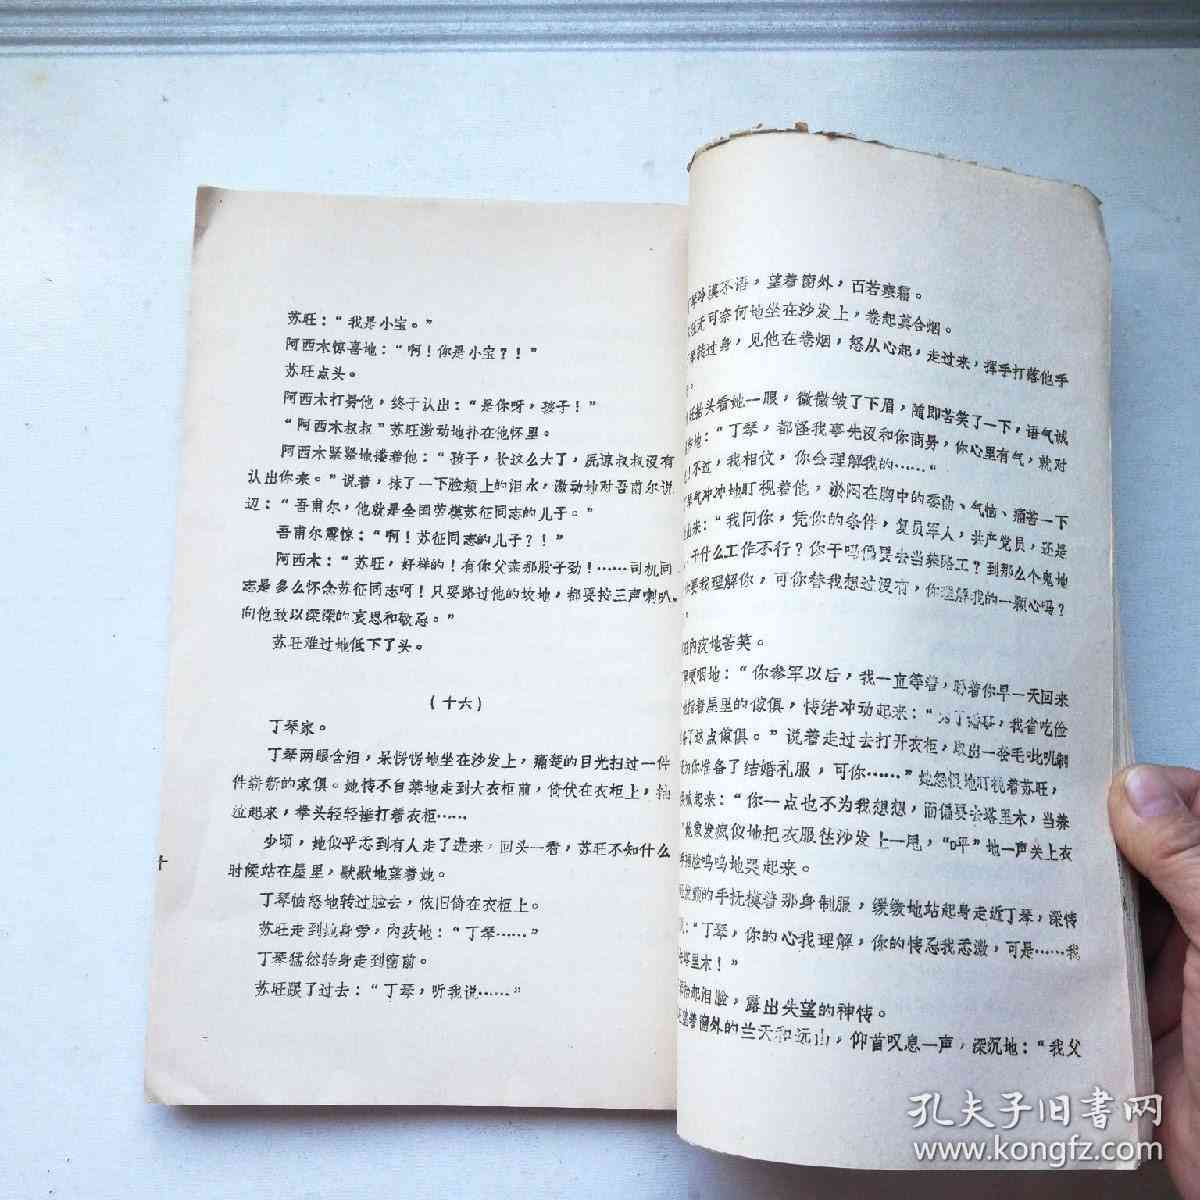 苏旺：“我是小宝。”
阿西木惊喜地：“啊！你是小宝？！”
苏旺点头。
阿西木打量他，终于认出：“是你呀，孩子！”
“阿西木叔叔”苏旺激动地扑在他怀里。
阿西木紧紧地搂着他：“孩子，长这么大了，原谅叔叔没有
认出你来。”说着，抹了一下脸颊上的泪水，激动地对吾甫尔说
道：“吾甫尔，他就是全国劳模苏征同志的儿子。”
吾甫尔震惊：“啊！苏征同志的儿子？！”
阿西木：“苏旺，好样的！有你父亲那股子劲！……司机同
志是多么怀念苏征同志呵！只要路过他的坟地，都要按三声喇叭，
向他致以深深的哀思和敬意。”
苏旺难过地低下了头。
（十六）
丁琴家。
丁琴两眼含泪，呆愣愣地坐在沙发上，痛楚的目光扫过一件
件崭新的家俱。她情不自禁地走到大衣柜前，倚伏在衣柜上，抽
泣起来，拳头轻轻捶打着衣柜……
少顷，她似乎感到有人走了进来，回头一看，苏旺不知什么
时候站在屋里，默默地望着她。
丁琴恼怒地转过脸去，依旧倚在衣柜上。
苏旺走到她身旁，内疚地：“丁琴……”
丁琴猛然转身走到窗前。
苏旺跟了过去：“丁琴，听我说……”
丁琴冷漠不语，望着窗外，面若寒霜。
无可奈何地坐在沙发上，卷起莫合烟。
转过身，见他在卷烟，怒从心起，走过来，挥手打落他手
抬头看她一眼，微微皱了下眉，随即苦笑了一下，语气诚
地：“丁琴，都怪我事先没和你商量，你心里有气，就对
！不过，我相信，你会理解我的……”
气冲冲地盯视着他，淤闷在胸中的委曲、气恼、痛苦一下
出来：“我问你，凭你的条件，复员军人，共产党员，还是
，干什么工作不行？你干吗偏要去当养路工？到那么个鬼地
要我理解你，可你替我想过没有，你理解我的一颗心吗？
内疚地苦笑。
哽咽地：“你参军以后，我一直等着，盼着你早一天回来
指着屋里的傢俱，情绪冲动起来：“为了结婚，我省吃俭
了这点傢俱。”说着走过去打开衣柜，取出一套毛哔叽制
为你准备了结婚礼服，可你……”她怨恨地盯视着苏旺，
喊起来：“你一点也不为我想想，而偏要去塔里木，当养
”她象发疯似地把衣服往沙发上一甩，“呯”地一声关上衣
捂脸呜呜地哭起来。
的手抚摸着那身制服，缓缓地站起身走近丁琴，深情
：“丁琴，你的心我理解，你的情意我感激，可是……我
塔里木！”
泪脸，露出失望的神情。
望着窗外的兰天和远山，仰首叹息一声，深沉地：“我父
孔夫子旧书网
www.kongfz.com